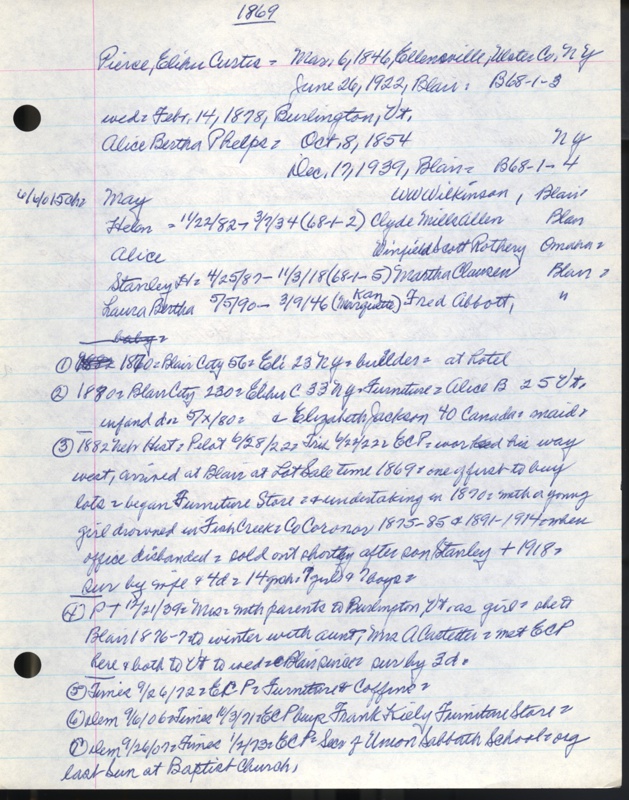 1869
Pierce, Elihu Curtis = Mar. 6, 1846, Ellensville, Ulster Co, N Y
June 26, 1922, Blair = B68-1-3
wed = Febr. 14, 1878, Burlington, Vt.
Alice Bertha Phelps = Oct. 8, 1854 N Y
Dec. 17, 1939, Blair = B68-1-4
May W W Wilkinson, Blair
Helen = 11/22/82 - 3/7/34 (68-1-2) Clyde Mills Allen Blair
Alice Winfield Scott Rothery Omaha =
Stanley H = 4/25/87 - 11/3/18 (68-1-5) Martha Clausen Blair =
Laura Bertha 5/5/90 - 3/9/46 (Marquette Kan) Fred Abbott, "
baby =
① 1870 = Blair City 56 = Eli 23 Ny = builder = at Hotel
② 1880 = Blair City 230 = Elihu C 33 Ny = Furniture = Alice B 25 Vt.
infand da = 5/x/80 = & Elizabeth Jackson 40 Canada = maid =
③ 1882 Nebr Hist = Pilot 6/28/22 = Trib 6/29/22 = E C P = worked his way
west, arrived at Blair at Lot Sale time 1869 = one of first to buy
lots = began Furniture Store = & undertaking in 1870 = with a young
girl drowned in Fish Creek = Co Coronor 1875-85 & 1891-1914 = when
office disbanded = sold out shortly after son Stanley + 1918 =
sur by wife & 4 d = 14 gch = 7 girls & 7 boys =
④ P + 12/21/39 = Mrs = with parents to Burlington, Vt. as girl = she to
Blair 1876-7 to winter with aunt, Mrs A Castetter = met E C P
here & both to Vt to wed = Blair since = sur by 3 d =
⑤ Times 9/26/72 = E C P = Furniture & Coffins =
⑥ dem 9/6/06 = Times 10/3/71 = E C P buys Frank Kiely Furniture Store =
⑦ dem 9/26/07 = Times 1/2/73 = E C P = Secr of Union Sabbath School = org
last Sun at Baptist Church,